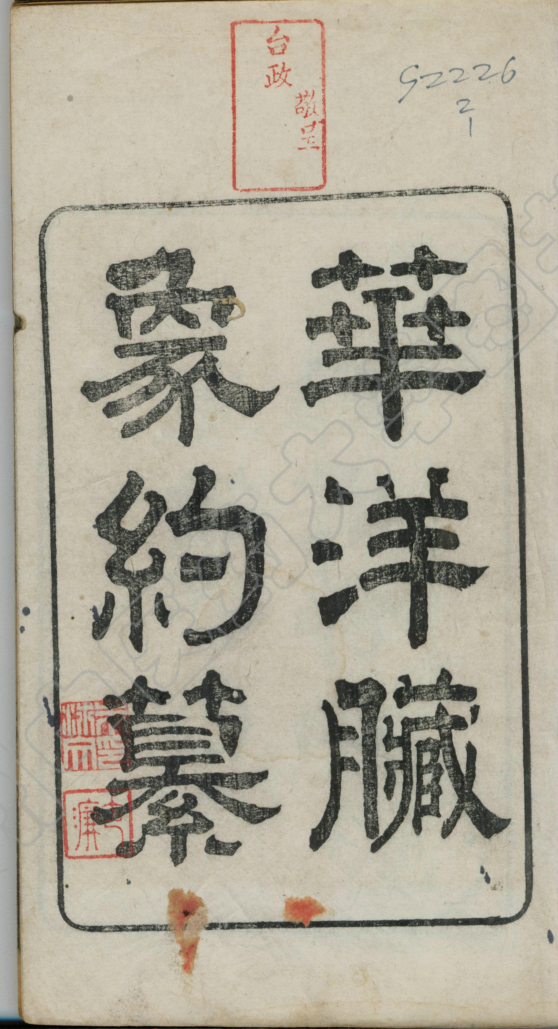 台政
敬呈
G2226
2
1
華洋臟
象約纂